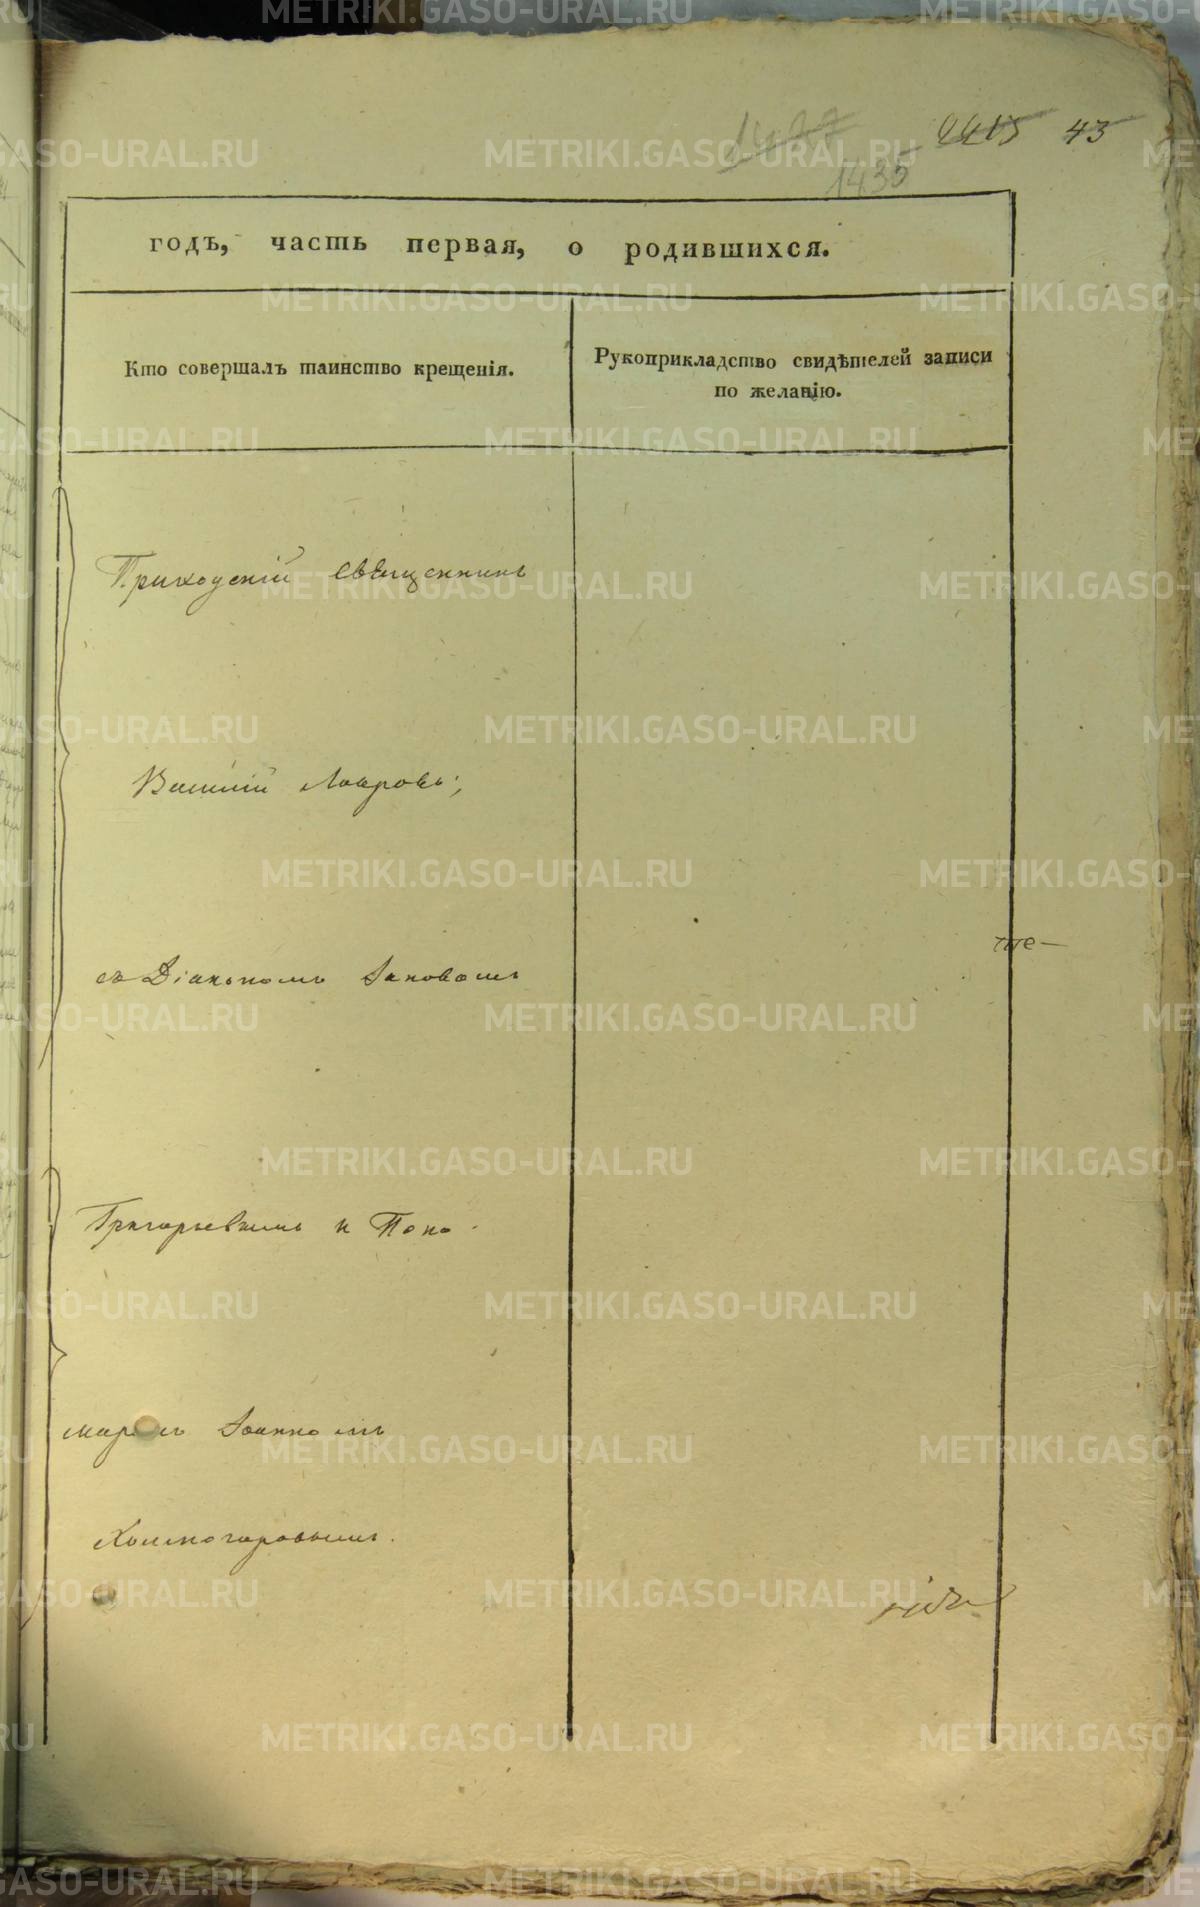 1435 43
годъ, часть первая, о родившихся.
Кто совершалъ таинство крещенія.
Рукоприкладство свидѣтелей записи
по желанію.
Приходскій Священникъ
Василій Лавровъ;
съ Діакономъ Іаковомъ
те—
Григорьевымъ и Поно-
маремъ Іоанномъ
Холмогоровымъ.
METRIKI.GASO-URAL.RU